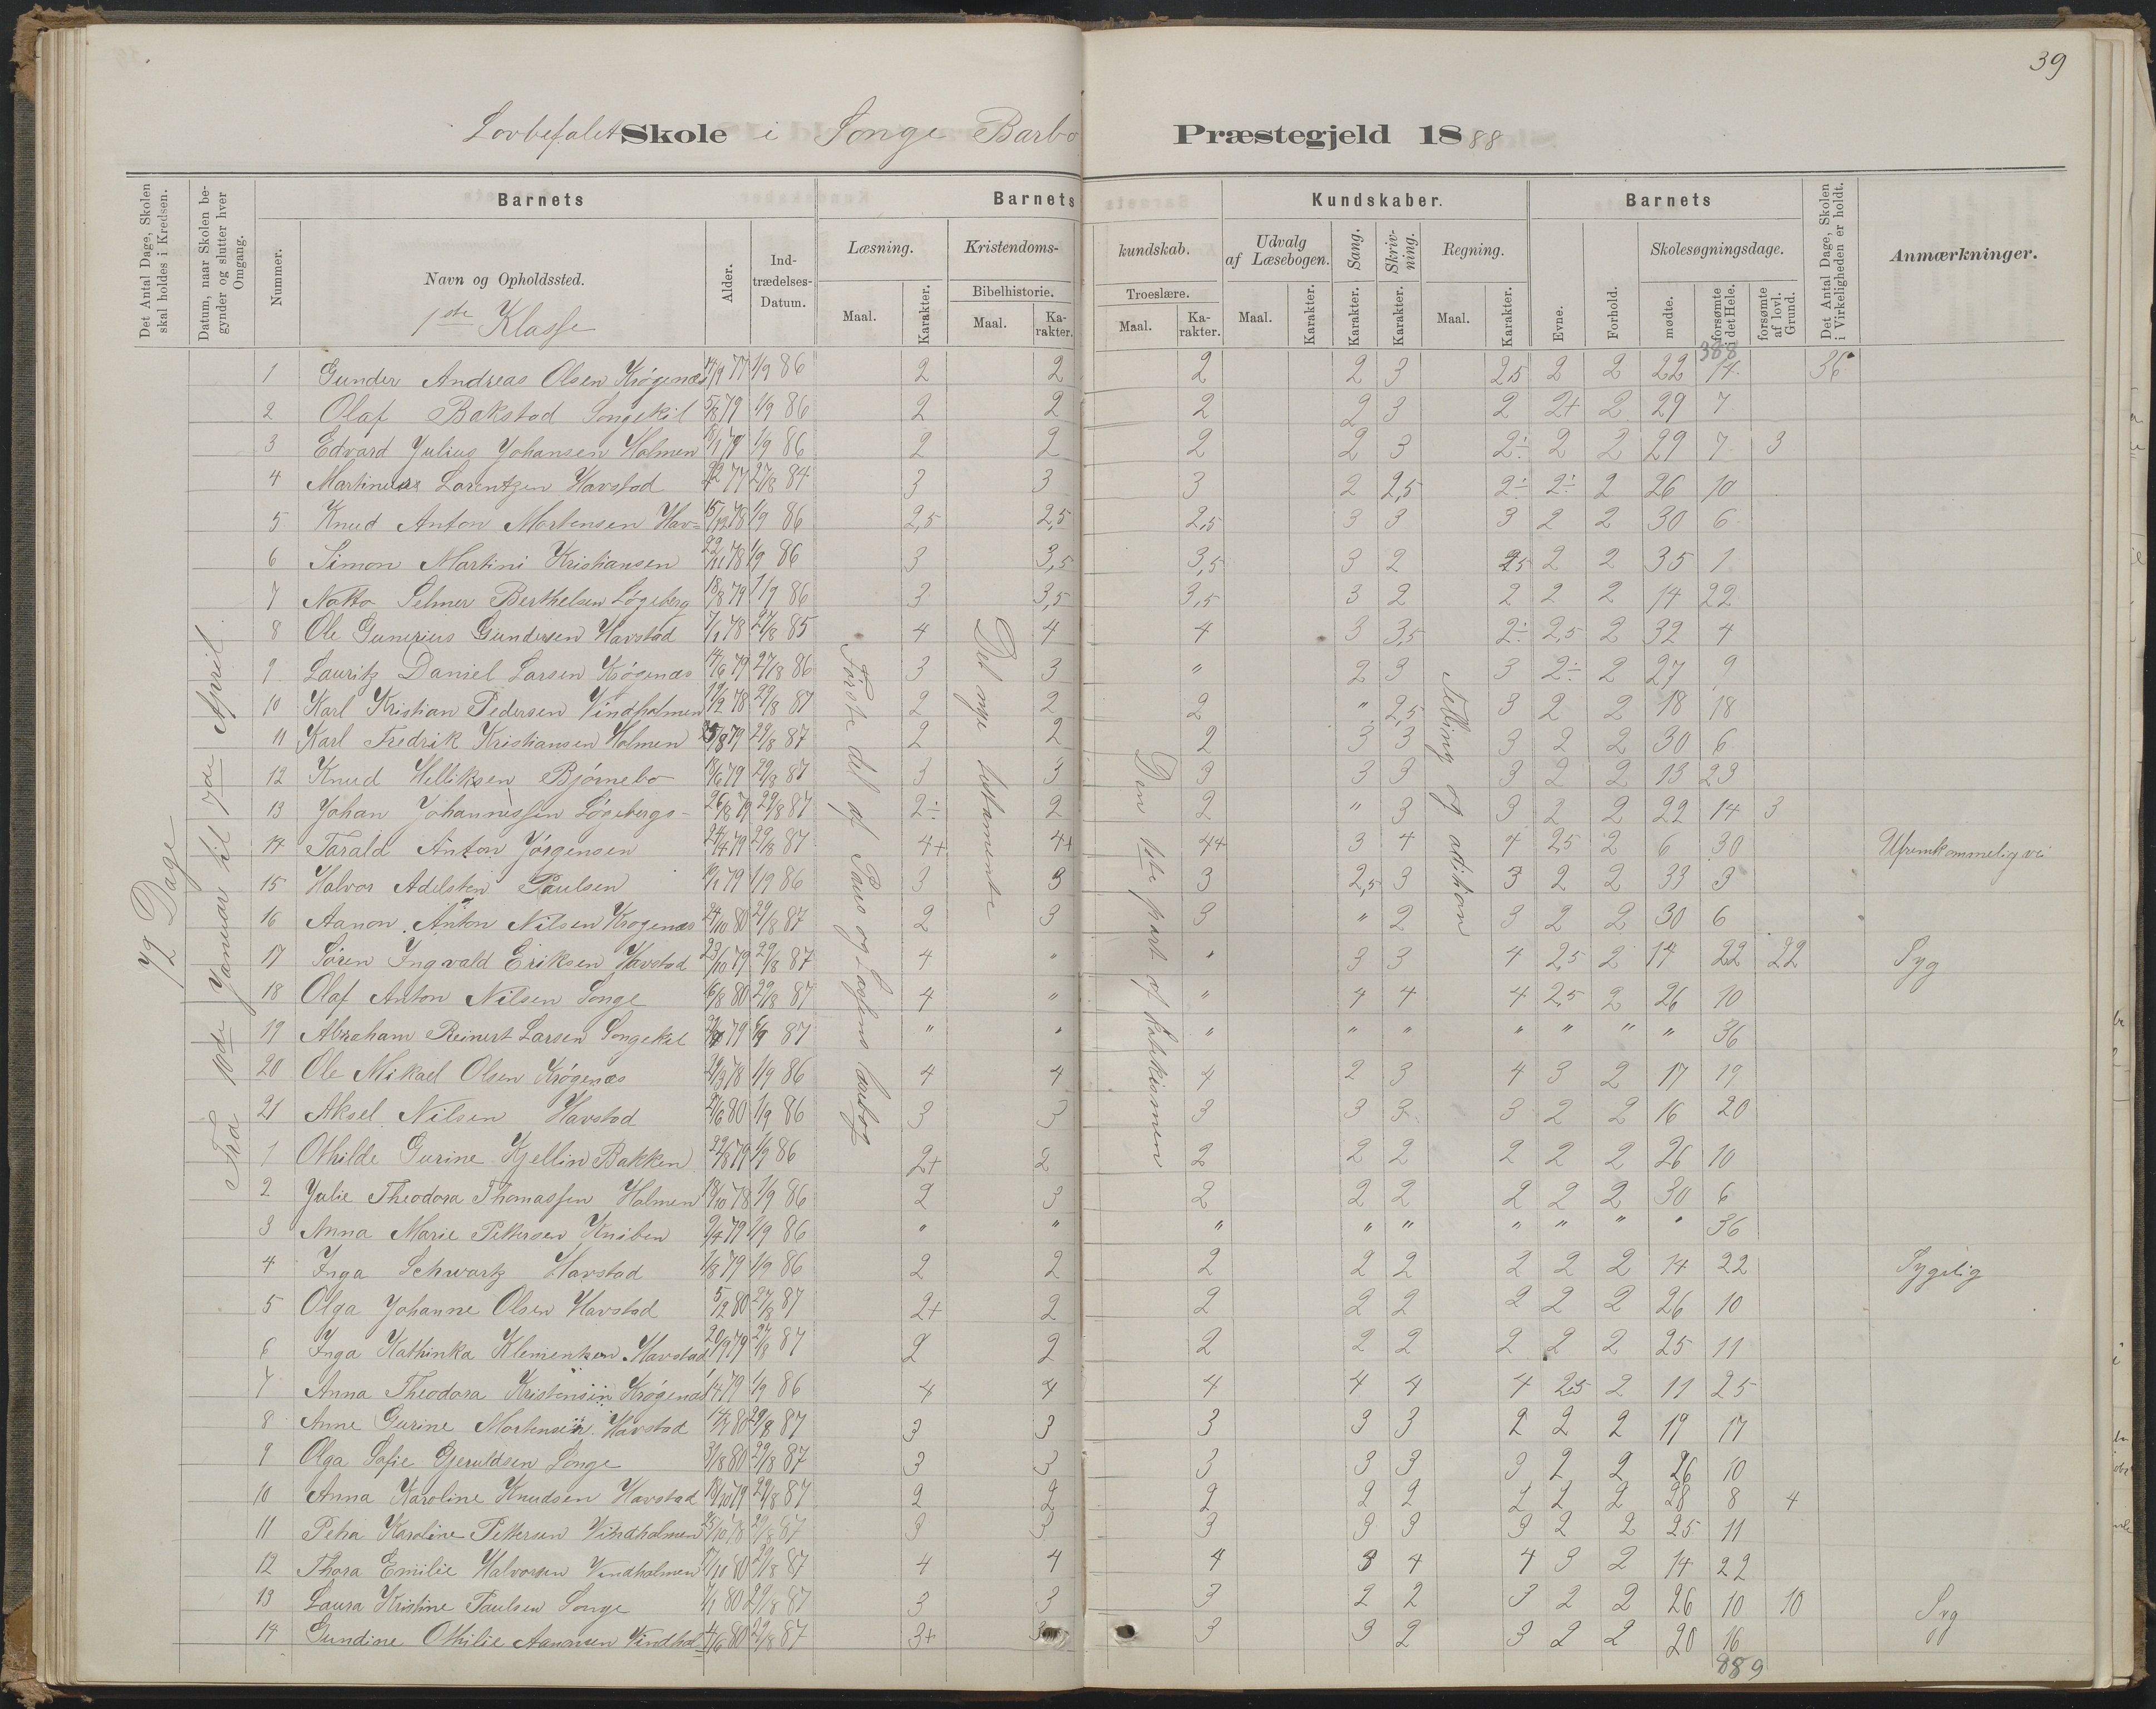 39
Lovbefalet Skole i Songe Barbo Præstegjeld 1888
Det Antal Dage, Skolen skal holdes i Kredsen.
Datum, naar Skolen begynder og slutter hver Omgang.
Barnets
Barnets
Kundskaber.
Barnets
Det Antal Dage, Skolen i Virkeligheden er holdt.
Anmærkninger.
Nummer.
Navn og Opholdssted.
Alder.
Ind-
trædelses-
Datum.
Læsning.
Kristendoms-
kundskab.
Udvalg
af Læsebogen.
Sang.
Skriv-
ning.
Regning.
Evne.
Forhold.
Skolesøgningsdage.
Bibelhistorie.
Troeslære.
Maal.
Karakter.
Maal.
Ka-
rakter.
Maal.
Ka-
rakter.
Maal.
Karakter.
Karakter.
Karakter.
Maal.
Karakter.
mødte.
forsømte
i det Hele.
forsømte
af lovl.
Grund.
1ste Klasse
72 Dage
Fra 10de Januar til 7de April
Første del af Paus og Lassens læsebog
Det nye testamente
Den 1ste part af katekismen
Telling og adition
388
1 Gunder Andreas Olsen Krøgenæs 14/9 77 1/9 86 2 2 2 2 3 2,5 2 2 22 14 36
2 Olaf Bakstad Songekil 5/8 79 1/9 86 2 2 2 2 3 2 2+ 2 29 7
3 Edvard Julius Johansen Holmen 1/9 86 2 2 2 2 3 2÷ 2 2 29 7 3
4 Martinius Lorentzen Havstad 77 27/8 84 3 3 3 2 2,5 2÷ 2÷ 2 26 10
5 Knud Anton Mortensen Hav= 15/12 78 1/9 86 2,5 2,5 2,5 3 3 3 2 2 30 6
6 Simon Martini Kristiansen 22/11 78 1/9 86 3 3,5 3,5 3 2 2,5 2 2 35 1
7 Selmer Berthelsen Løgeberg 18/8 79 1/9 86 3 3,5 3,5 3 2 2 2 2 14 22
8 Ole Gunerius Gundersen Havstad 7/1 78 27/8 85 4 4 4 3 3,5 2÷ 2,5 2 32 4
9 Lauritz Daniel Larsen Krøgenæs 14/6 79 27/8 86 3 3 " 2 3 3 2÷ 2 27 9
10 Karl Kristian Pedersen Vindholmen 19/2 78 29/8 87 2 2 2 " 2,5 3 2 2 18 18
11 Karl Fredrik Kristiansen Holmen 79 29/8 87 2 2 2 3 3 3 2 2 30 6
12 Knud Helliksen Bjørnebo 18/6 79 29/8 87 3 3 3 3 3 3 2 2 13 23
13 Johan Johannessen Løgebergs- 26/8 79 29/8 87 2÷ 2 2 " 3 3 2 2 22 14 3
14 Tarald Anton Jørgensen 24/4 79 29/8 87 4+ 4+ 4+ 3 4 4 2,5 2 6 30 Ufremkommelig vei
15 Halvor Adelsten Paulsen 79 1/9 86 3 3 3 2,5 3 3 2 2 33 3
16 Aanon Anton Nilsen Krøgenæs 24/10 80 29/8 87 2 3 3 " 2 3 2 2 30 6
17 Søren Ingvald Eriksen Havstad 23/10 79 29/8 87 4 " " 3 3 4 2,5 2 14 22 22 Syg
18 Olaf Anton Nilsen Songe 6/8 80 29/8 87 4 " " 4 4 4 2,5 2 26 10
19 Abraham Reinert Larsen Songekil 79 87 " " " " " " " " " 36
20 Ole Mikael Olsen Krøgenæs 29/3 78 1/9 86 4 4 4 2 3 4 3 2 17 19
21 Aksel Nilsen Havstad 80 1/9 86 3 3 3 3 3 3 2 2 16 20
1 Othilde Gurine Kjellin Bakken 79 1/9 86 2+ 2 2 2 2 2 2 2 26 10
2 Julie Theodora Thomassen Holmen 18/10 78 1/9 86 2 3 2 2 2 2 2 2 30 6
3 Anna Marie Pettersen Kniben 9/4 79 1/9 86 " " " " " " " " " 36
4 Inga Schwartz Havstad 1/8 79 1/9 86 2 2 2 2 2 2 2 2 14 22 Sygelig
5 Olga Johanne Olsen Havstad 5/2 80 27/8 87 2+ 2 2 2 2 2 2 2 26 10
6 Inga Kathinka Klementsen Havstad 20/9 79 87 2 2 2 2 2 2 2 2 25 11
7 Anna Theodora Kristensen Krøgenæs 79 1/9 86 4 4 4 4 4 4 2,5 2 11 25
8 Anne Gurine Mortensen Havstad 80 29/8 87 3 3 3 3 3 2 2 2 19 17
9 Olga Sofie Gjeruldsen Songe 31/8 80 29/8 87 3 3 3 3 3 3 2 2 26 10
10 Anna Karoline Knudsen Havstad 18/10 79 29/8 87 2 2 2 2 2 2 2 2 28 8 4
11 Petra Karoline Pettersen Vindholmen 78 29/8 87 3 3 3 3 3 3 2 2 25 11
12 Thora Emilie Halvorsen Vindholmen 17/10 80 29/8 87 4 4 4 3 4 4 3 2 14 22
13 Laura Kristine Paulsen Songe 7/1 80 29/8 87 3 3 3 2 2 3 2 2 26 10 10 Syg
14 Gundine Othilie Aanonsen Vindhol= 4/6 80 29/8 87 3+ 3 3 3 2 3 2 2 20 16
889